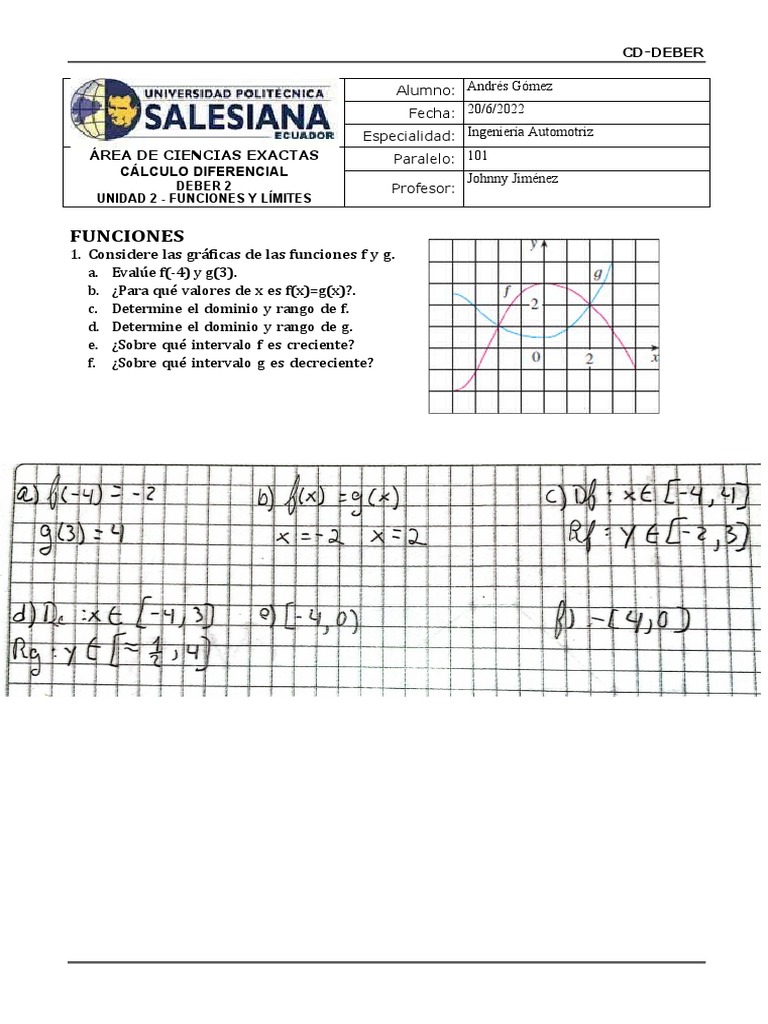 CD-DEBER
UNIVERSIDAD POLITÉCNICA
SALESIANA
ECUADOR
ÁREA DE CIENCIAS EXACTAS
CÁLCULO DIFERENCIAL
DEBER 2
UNIDAD 2 - FUNCIONES Y LÍMITES
Alumno: Andrés Gómez
Fecha: 20/6/2022
Especialidad: Ingeniería Automotriz
Paralelo: 101
Profesor: Johnny Jiménez
FUNCIONES
1. Considere las gráficas de las funciones f y g.
a. Evalúe f(-4) y g(3).
b. ¿Para qué valores de x es f(x)=g(x)?.
c. Determine el dominio y rango de f.
d. Determine el dominio y rango de g.
e. ¿Sobre qué intervalo f es creciente?
f. ¿Sobre qué intervalo g es decreciente?
y
g
f
2
0
2
x
a) f(-4) = -2
g(3) = 4
b) f(x) = g(x)
x = -2 x = 2
c) Df : x ∈ [-4, 4]
Rf : y ∈ [-2, 3]
d) D : x ∈ [-4, 3]
Rg : y ∈ [≈ 1/2, 4]
e) [-4, 0)
f) -[4, 0)